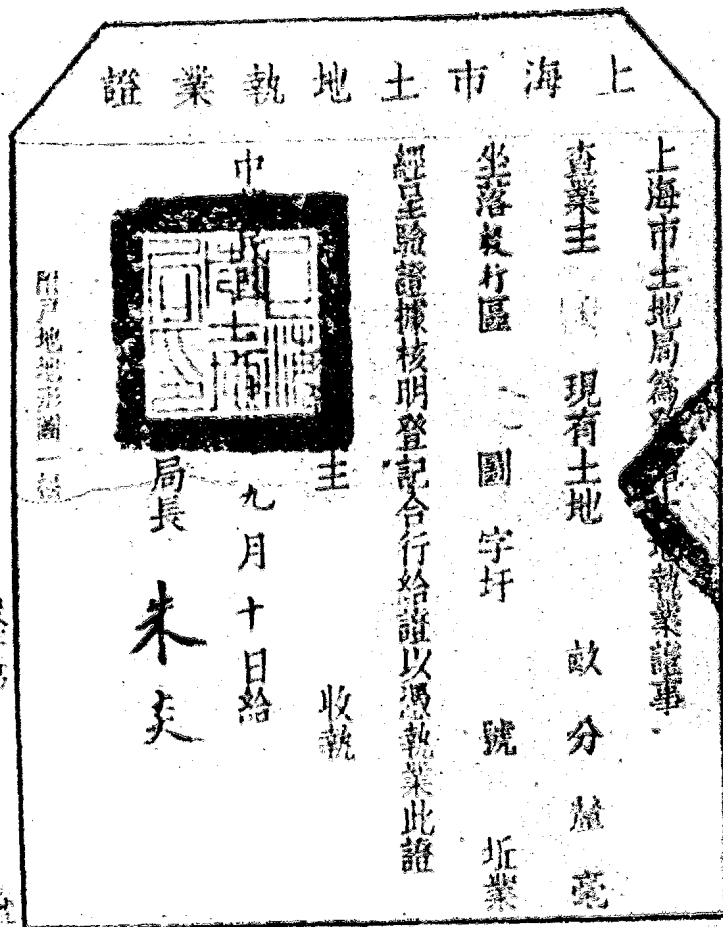 上海市土地執業證
上海市土地局為 地執業證事
查業主 現有土地 畝 分 釐 毫
坐落 行區 圖 字圩 號 坵業
經呈驗證據核明登記合行給證以憑執業此證
主 收執
中 九月十日給
局長 朱炎
附戶地地形圖一幅